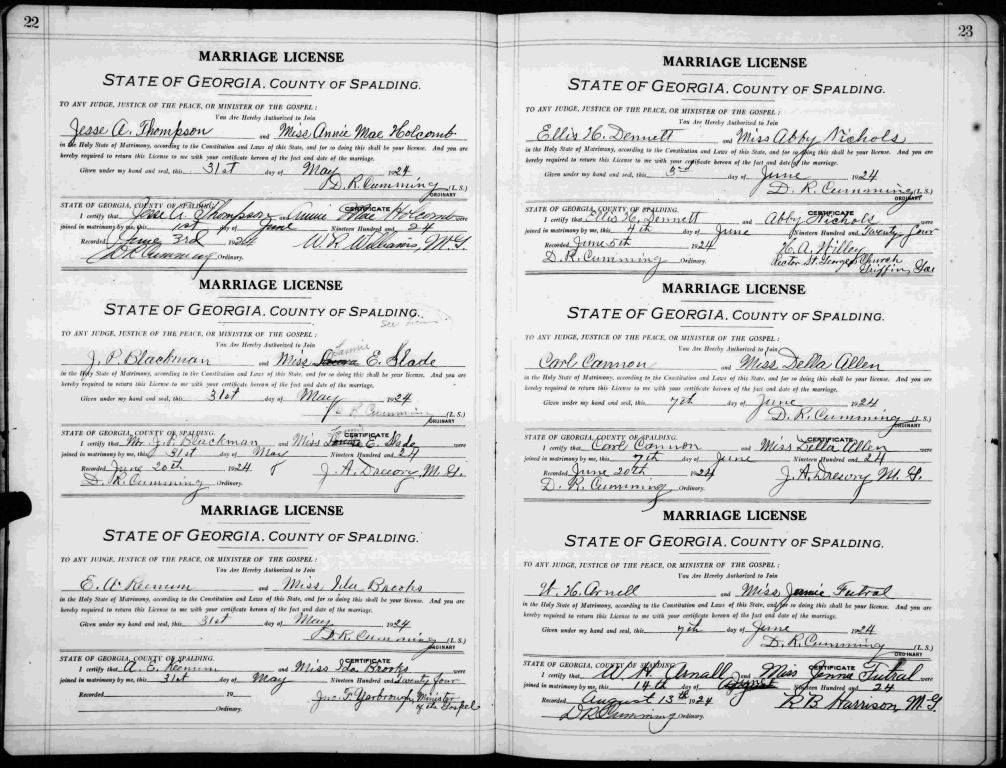 22
MARRIAGE LICENSE
STATE OF GEORGIA, COUNTY OF SPALDING.
TO ANY JUDGE, JUSTICE OF THE PEACE, OR MINISTER OF THE GOSPEL:
You Are Hereby Authorized to Join
Jesse A. Thompson and Miss Annie Mae Holcomb
in the Holy State of Matrimony, according to the Constitution and Laws of this State, and for so doing this shall be your license. And you
hereby required to return this License to me with your certificate hereon of the fact and date of the marriage.
Given under my hand and seal, this 31st day of May 1924
D. R. Cumming (L. S.)
ORDINARY
STATE OF GEORGIA, COUNTY OF SPALDING. CERTIFICATE
I certify that Jesse A. Thompson and Annie Mae Holcomb were
joined in matrimony by me, this 1st day of June Nineteen Hundred and 24
Recorded June 3rd 1924 W. R. Williams, M. G.
D R Cumming Ordinary.
MARRIAGE LICENSE
STATE OF GEORGIA, COUNTY OF SPALDING.
See
TO ANY JUDGE, JUSTICE OF THE PEACE, OR MINISTER OF THE GOSPEL:
You Are Hereby Authorized to Join
Fannie
J. P. Blackman and Miss E. Slade
in the Holy State of Matrimony, according to the Constitution and Laws of this State, and for so doing this shall be your license. And you
hereby required to return this License to me with your certificate hereon of the fact and date of the marriage.
Given under my hand and seal, this 31st day of May 1924
D R Cumming (L. S.)
ORDINARY
STATE OF GEORGIA, COUNTY OF SPALDING. CERTIFICATE
I certify that Mr. J. P. Blackman and Miss E. Slade were
joined in matrimony by me, this 31st day of May Nineteen Hundred and 24
Recorded June 20th 1924 J. A. Drewry M. G.
D. R. Cumming Ordinary.
MARRIAGE LICENSE
STATE OF GEORGIA, COUNTY OF SPALDING.
TO ANY JUDGE, JUSTICE OF THE PEACE, OR MINISTER OF THE GOSPEL:
You Are Hereby Authorized to Join
E. A. Keenum and Miss Ida Brooks
in the Holy State of Matrimony, according to the Constitution and Laws of this State, and for so doing this shall be your license. And you
hereby required to return this License to me with your certificate hereon of the fact and date of the marriage.
Given under my hand and seal, this 31st day of May 1924
D. R. Cumming (L. S.)
ORDINARY
STATE OF GEORGIA, COUNTY OF SPALDING. CERTIFICATE
I certify that A. E. Keenum and Miss Ida Brooks were
joined in matrimony by me, this 31st day of May Nineteen Hundred and Twenty Four
Recorded 19 Jno. F. Yarbrough, Minister
of the Gospel
Ordinary.
23
MARRIAGE LICENSE
STATE OF GEORGIA, COUNTY OF SPALDING.
TO ANY JUDGE, JUSTICE OF THE PEACE, OR MINISTER OF THE GOSPEL:
You Are Hereby Authorized to Join
Ellis H. Dennett and Miss Abby Nichols
in the Holy State of Matrimony, according to the Constitution and Laws of this State, and for so doing this shall be your license. And you
hereby required to return this License to me with your certificate hereon of the fact and date of the marriage.
Given under my hand and seal, this 3rd day of June 1924
D. R. Cumming (L. S.)
ORDINARY
STATE OF GEORGIA, COUNTY OF SPALDING. CERTIFICATE
I certify that Ellis H. Dennett and Abby Nichols were
joined in matrimony by me, this 4th day of June Nineteen Hundred and Twenty-four
Recorded June 5th 1924 H. A. Willey
D. R. Cumming Ordinary. Rector St. George's Church
Griffin, Ga
MARRIAGE LICENSE
STATE OF GEORGIA, COUNTY OF SPALDING.
TO ANY JUDGE, JUSTICE OF THE PEACE, OR MINISTER OF THE GOSPEL:
You Are Hereby Authorized to Join
Carl Cannon and Miss Della Allen
in the Holy State of Matrimony, according to the Constitution and Laws of this State, and for so doing this shall be your license. And you
hereby required to return this License to me with your certificate hereon of the fact and date of the marriage.
Given under my hand and seal, this 7th day of June 1924
D. R. Cumming (L. S.)
ORDINARY
STATE OF GEORGIA, COUNTY OF SPALDING. CERTIFICATE
I certify that Carl Cannon and Miss Della Allen were
joined in matrimony by me, this 7th day of June Nineteen Hundred and 24
Recorded June 20th 1924 J. A. Drewry M. G.
D. R. Cumming Ordinary.
MARRIAGE LICENSE
STATE OF GEORGIA, COUNTY OF SPALDING.
TO ANY JUDGE, JUSTICE OF THE PEACE, OR MINISTER OF THE GOSPEL:
You Are Hereby Authorized to Join
W. H. Arnell and Miss Jennie Futral
in the Holy State of Matrimony, according to the Constitution and Laws of this State, and for so doing this shall be your license. And you
hereby required to return this License to me with your certificate hereon of the fact and date of the marriage.
Given under my hand and seal, this 7th day of June 1924
D. R. Cumming (L. S.)
ORDINARY
STATE OF GEORGIA, COUNTY OF SPALDING. CERTIFICATE
I certify that W. H. Arnall and Miss Jennie Futral were
joined in matrimony by me, this 14th day of August Nineteen Hundred and 24
Recorded August 15th 1924 R B Harrison, M. G.
D R Cumming Ordinary.